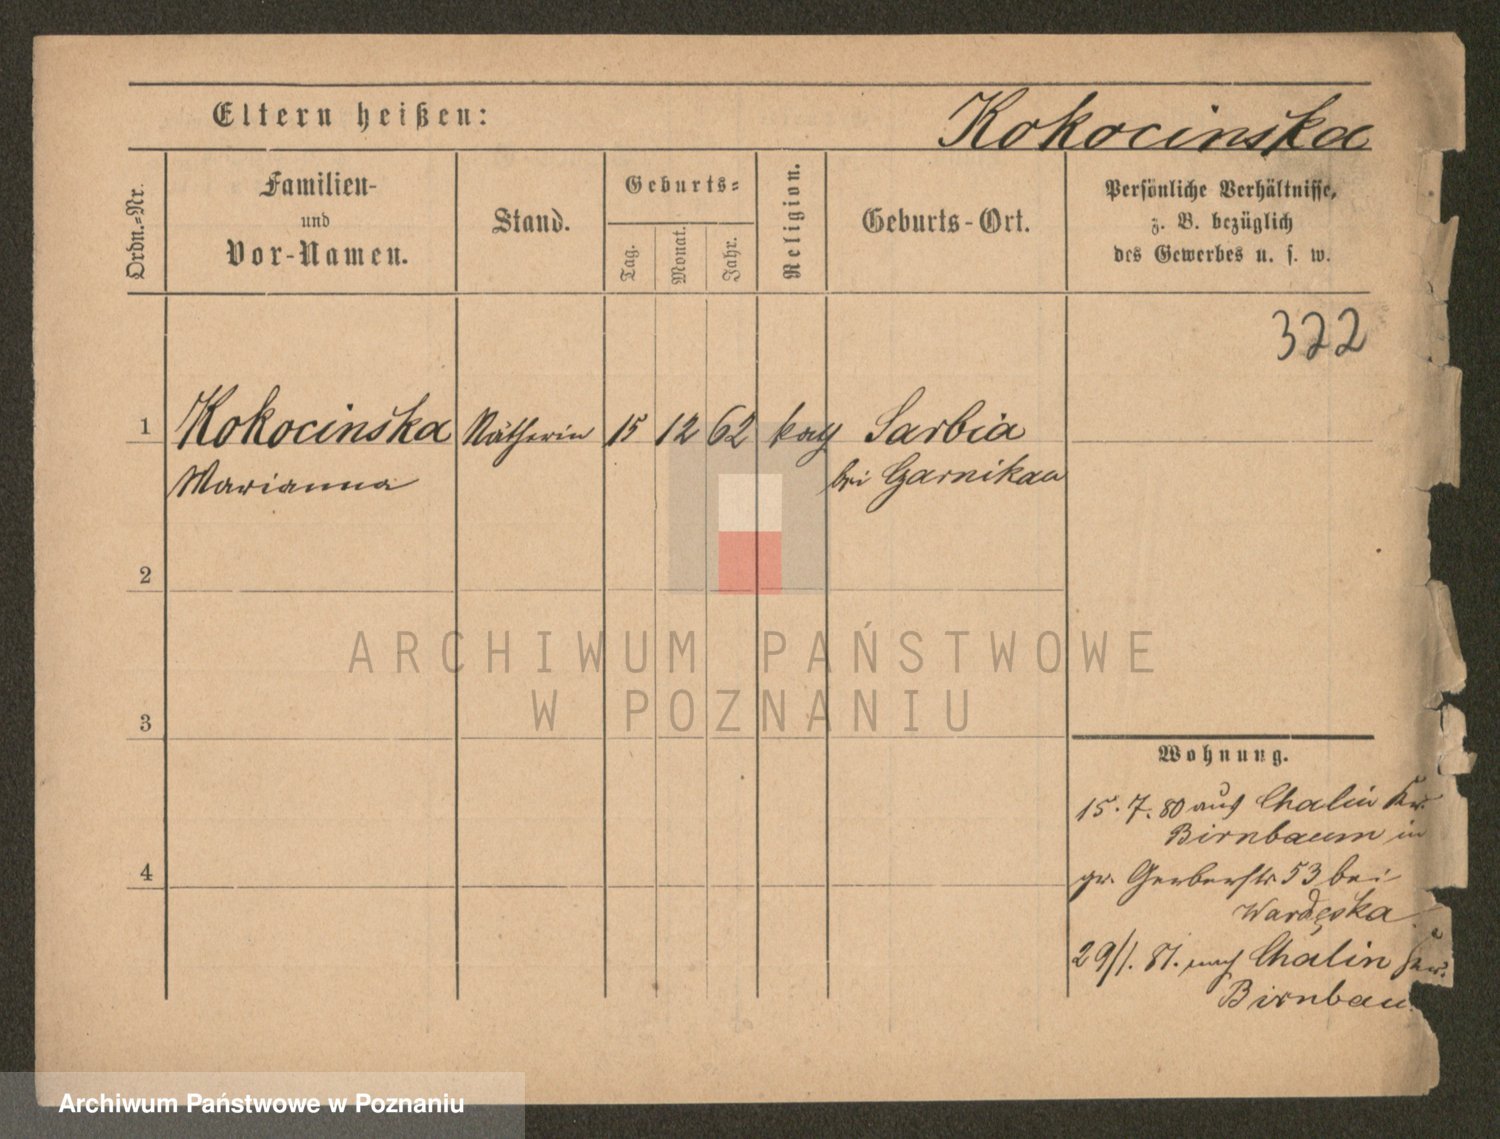 Eltern heißen:
Kokocinska
Ordn.-Nr.
Familien-
und
Vor-Namen.
Stand.
Geburts-
Tag.
Monat.
Jahr.
Religion.
Geburts-Ort.
Persönliche Verhältnisse,
z. B. bezüglich
des Gewerbes u. s. w.
322
1 Kokocinska Nätherin 15 12 62 kath Sarbia
Marianna bei Czarnikau
2
3
4
ARCHIWUM PAŃSTWOWE
W POZNANIU
Wohnung.
15. 7. 80 aus Chalin Kr.
Birnbaum in
gr. Gerberstr 53 bei
Wardęska
29/1. 81. nach Chalin
Birnbau
Archiwum Państwowe w Poznaniu